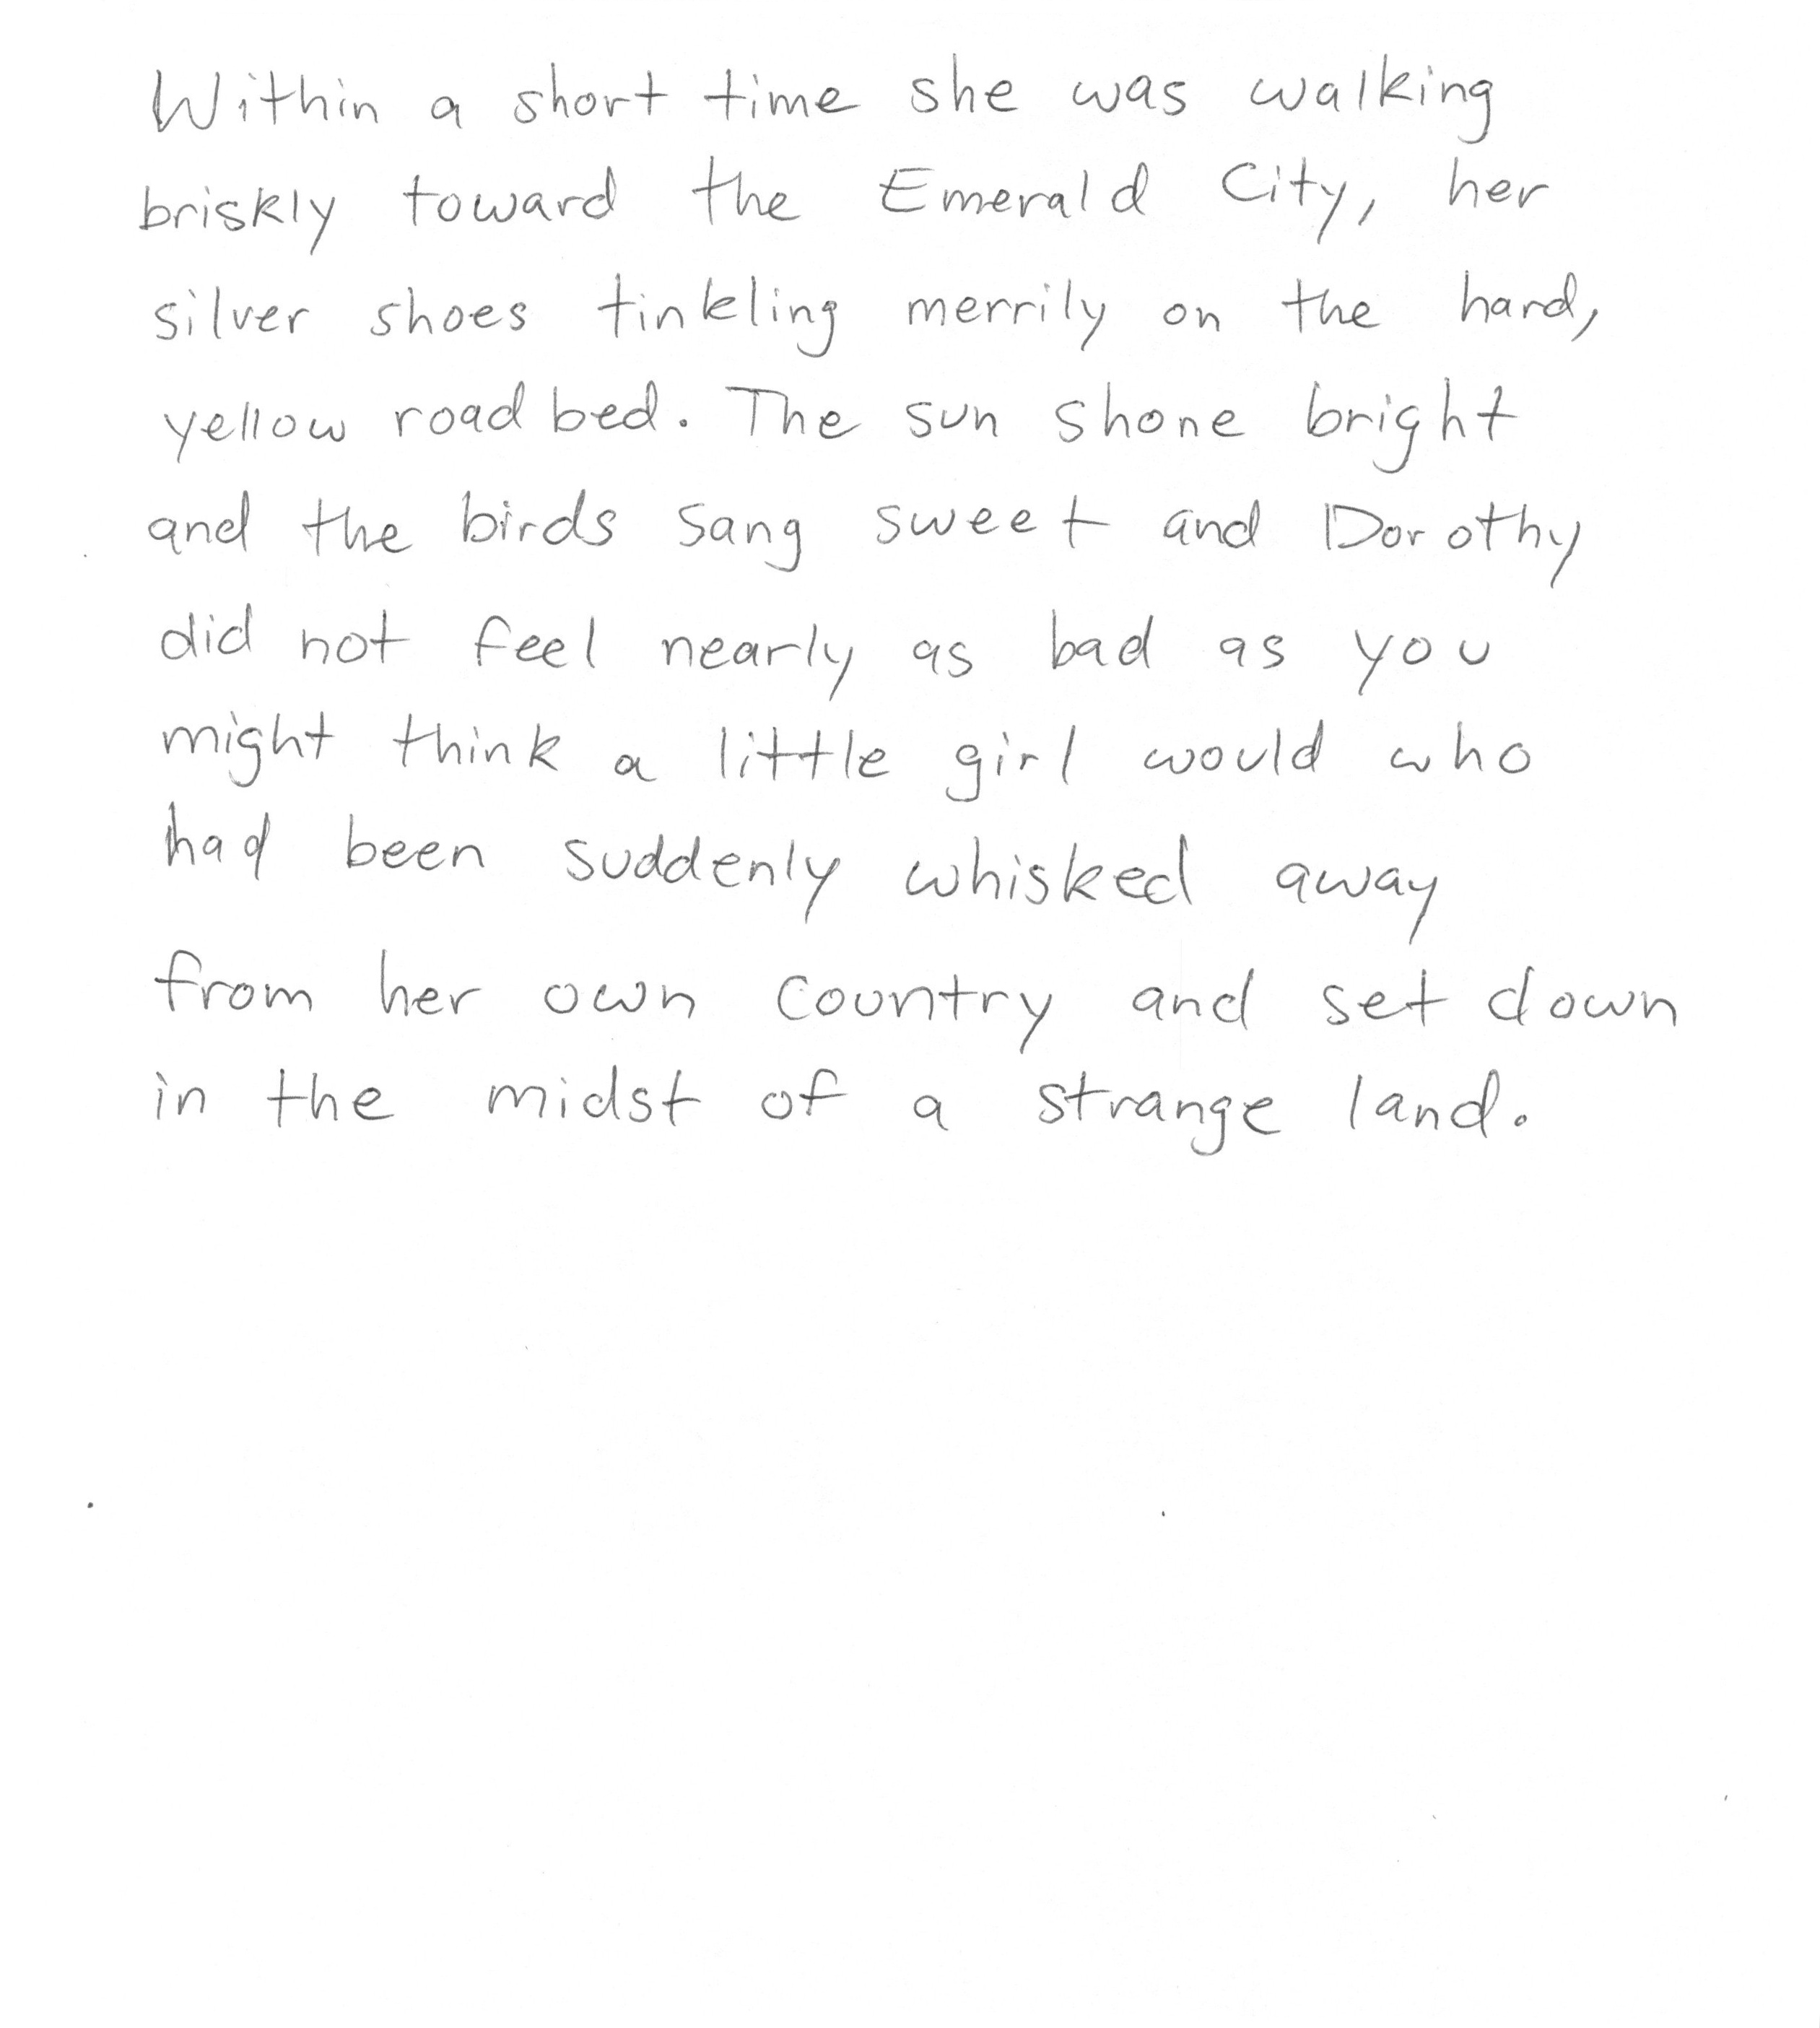 Within a short time she was walking
briskly toward the Emerald City, her
silver shoes tinkling merrily on the hard,
yellow road bed. The sun shone bright
and the birds sang sweet and Dorothy
did not feel nearly as bad as you
might think a little girl would who
had been suddenly whisked away
from her own country and set down
in the midst of a strange land.